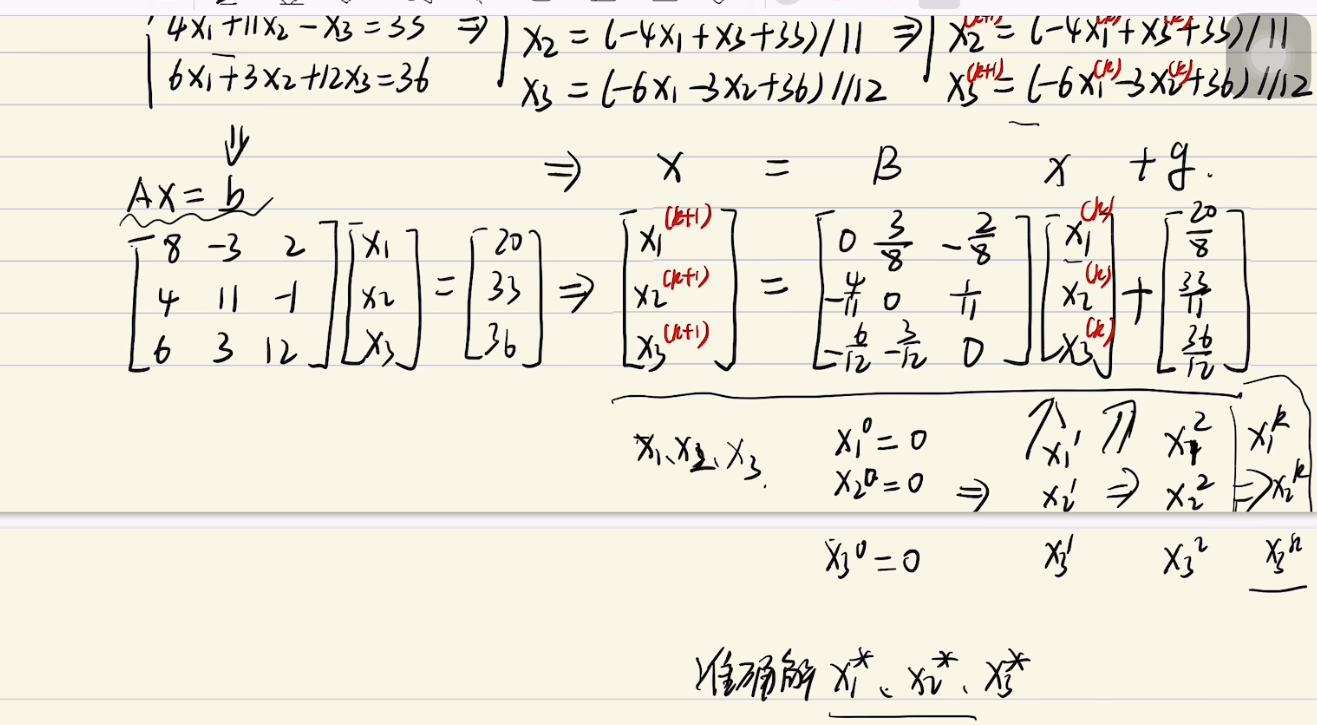 4x₁+11x₂-x₃=33 ⇒ x₂ = (-4x₁+x₃+33)/11 ⇒ x₂^(k+1) = (-4x₁^(k)+x₃^(k)+33)/11
6x₁+3x₂+12x₃=36 x₃ = (-6x₁-3x₂+36)/12 x₃^(k+1) = (-6x₁^(k)-3x₂^(k)+36)/12
⇓
Ax=b ⇒ x = B x +g.
[8 -3 2; 4 11 -1; 6 3 12] [x₁; x₂; x₃] = [20; 33; 36] ⇒ [x₁^(k+1); x₂^(k+1); x₃^(k+1)] = [0 3/8 -2/8; -4/11 0 1/11; -6/12 -3/12 0] [x₁^(k); x₂^(k); x₃^(k)] + [20/8; 33/11; 36/12]
x₁、x₂、x₃. x₁⁰=0 x₁¹ x₁² x₁ᵏ
x₂⁰=0 ⇒ x₂¹ ⇒ x₂² ⇒ x₂ᵏ
x₃⁰=0 x₃¹ x₃² x₃ᵏ
准确解 x₁*、x₂*、x₃*